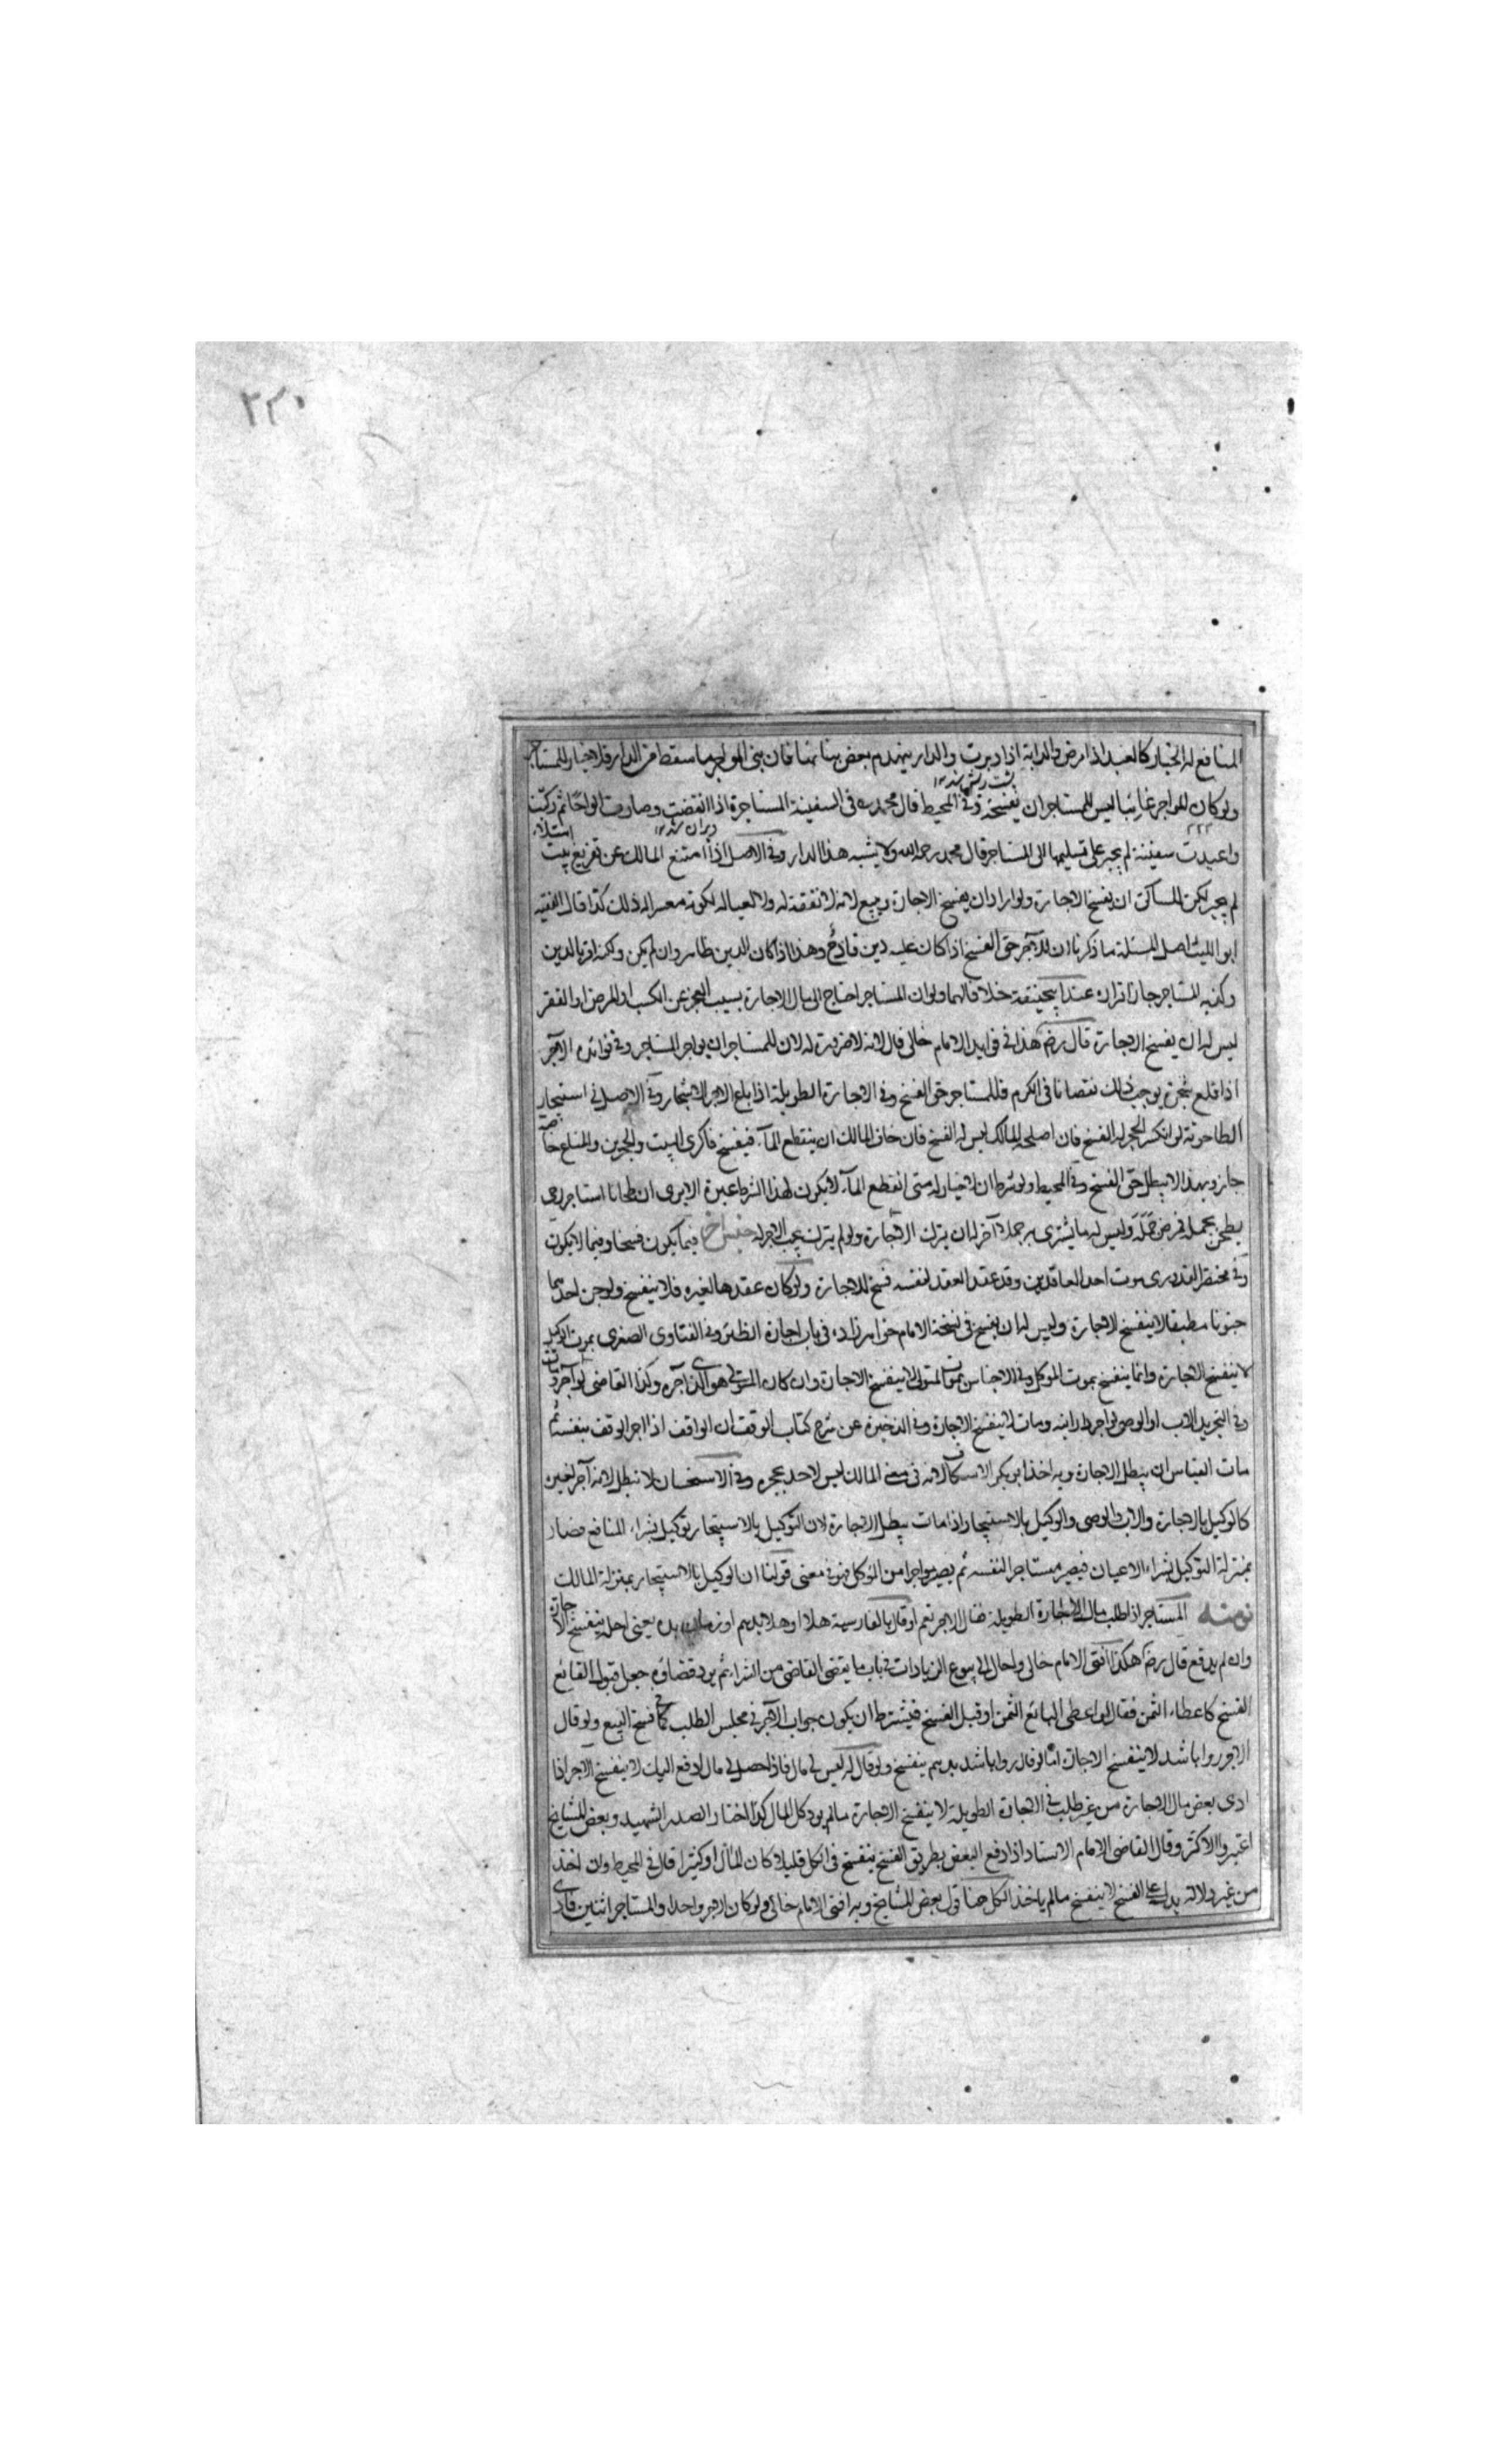 ٢٣٠
المنافع له الخيار كالعبد اذا مرض والدابة اذا دبرت والدار ينهدم بعض بنائها فان بنى المواجر ما سقط من الدار فلا خيار للمستاجر
پشت ريش شد ١٢
ولو كان المواجر غائبا ليس للمستاجر ان يفسخ وفي المحيط قال محمد رح في السفينة المستاجرة اذا انقضت وصارت الواحا ثم ركبت
ويران شد ١٢
واعيدت سفينة لم يجبر على تسليمها الى المستاجر قال محمد رحمه الله ولا يشبه هذا الدار وفي الاصل اذا امتنع المالك عن تفريغ بيت
لم يجبر لكن للساكن ان يفسخ الاجارة ولو اراد ان يفسخ الاجارة ويبيع لانه لا نفقة له ولا لعياله لكونه معسرا له ذلك كذا قال الفقيه
ابو الليث اصل المسئلة ما ذكرنا ان للآجر حق الفسخ اذا كان عليه دين فادح وهذا اذا كان الدين ظاهر وان لم يكن ولكنه اقر بالدين
وكذبه المستاجر جاز اقراره عند ابيحنيفة خلافا لهما ولو ان المستاجر احتاج الى مال الاجارة بسبب العجز عن الكسب او المرض او الفقر
ليس له ان يفسخ الاجارة قال رضم هكذا في فوايد الامام خالي قال لانه لا ضرورة له لان للمستاجر ان يواجر المستاجر وفي فوائده الآجر
اذا قلع شجرة يوجب ذلك نقصانا في الكرم فللمستاجر حق الفسخ وفي الاجارة الطويلة اذا باع الآجر الاشجار وفي الاصل في استيجار
الطاحونة لو انكسر الحجر له الفسخ فان اصلحه المالك ليس له الفسخ فان خاف المالك ان ينقطع المآء فيفسخ فاكرى البيت والحجرين والمتاع خاصة
جاز وبهذا لا يبطل حق الفسخ وفي المحيط ولو شرط ان لا خيار له متى انقطع المآء لا يكون لهذا الشرط عبرة الا يرى ان طحانا استاجر رحى
يطحن بجمل فمرض جمله وليس له ما يشترى به جملا آخر له ان يترك الاجارة ولو لم يترك يجب الاجر له جنس آخر فيما يكون فسخا وفيما لا يكون
وفي مختصر القدوري موت احد العاقدين وقد عقد العقد لنفسه فسخ للاجارة ولو كان عقدها لغيره فلا ينفسخ ولو جن احدهما
جنونا مطبقا لا ينفسخ الاجارة وليس له ان يفسخ في نسخة الامام خواهر زاده في باب اجارة الظئر وفي الفتاوى الصغرى بموت الوكيل
لا ينفسخ الاجارة وانما ينفسخ بموت الموكل وفي الاجناس بموت المتولى لا ينفسخ الاجارة وان كان المتولى هو الذي آجره وكذا القاضى لو آجر ومات
وفي التجريد الاب او الوصى لو اجر دار ابنه ومات لا ينفسخ الاجارة وفي الذخيرة عن شرح كتاب الوقف ان الواقف اذا اجر الوقف بنفسه ثم
مات القياس ان يبطل الاجارة وبه اخذ ابو بكر الاسكاف لانه في معنى المالك ليس لاحد عجره وفي الاستحسان لا تبطل لانه آجر لغيره
كالوكيل بالاجارة والاب والوصى والوكيل بالاستيجار اذا مات يبطل الاجارة لان التوكيل بالاستيجار توكيل بشراء المنافع فصار
بمنزلة التوكيل بشراء الاعيان فيصير مستاجرا لنفسه ثم يصير مواجرا من الموكل فهو في معنى قولنا ان الوكيل بالاستيجار بمنزلة المالك
نوع منه المستاجر اذا طلب مال الاجارة الطويلة فقال الاجر نعم او قال بالفارسية هلا او هلا بدهم او زمان بده يعنى اجله ينفسخ الاجارة
وان لم يدفع قال رضم هكذا افتى الامام خالي واحال الى بيوع الزيادات في باب ما يقضى القاضى من الشراء ثم يرد قضاؤه جعل قبول البائع
الفسخ كاعطاء الثمن فقال لو اعطى البائع الثمن او قبل الفسخ فيشترط ان يكون جواب الآجر في مجلس الطلب كما في فسخ البيع ولو قال
الاجر روا باشد لا ينفسخ الاجارة اما لو قال روا باشد بدهم ينفسخ ولو قال له ليس لي مال فاذا حصل لي مال ادفع اليك لا ينفسخ الاجر اذا
ادى بعض مال الاجارة من غير طلب في الاجارة الطويلة لا ينفسخ الاجارة مالم يود كل المال كذا اختار الصدر الشهيد وبعض المشايخ
اعتبروا الاكثر وقال القاضى الامام الاستاد اذا دفع البعض بطريق الفسخ ينفسخ في الكل قليلا كان المال او كثيرا قال في المحيط وان اخذ
من غير دلالة يدل على الفسخ لا ينفسخ مالم ياخذ الكل هذا قول بعض المشايخ وبه افتى الامام خالي ولو كان الاجر واحدا والمستاجر اثنين فادى